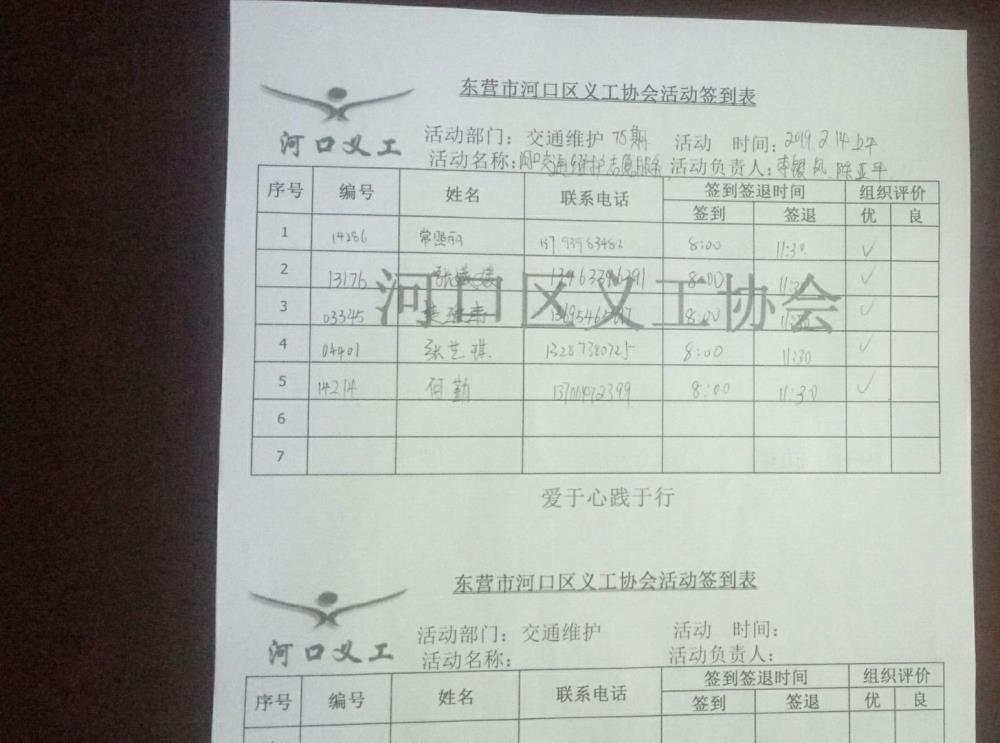 东营市河口区义工协会活动签到表
河口义工
活动部门：交通维护 75期 活动 时间：2019 2 14上午
活动名称：河口交通维护志愿服务 活动负责人：李银凤 陈亚平
序号 编号 姓名 联系电话 签到签退时间 组织评价
签到 签退 优 良
1 14286 常照丽 13793983482 8:00 11:30 ✓
2 13176 张 8:00 11:30 ✓
河口区义工协会
3 03345 8:00 11:30 ✓
4 04401 张艺琪 13287380725 8:00 11:30 ✓
5 14214 何勤 8:00 11:30 ✓
6
7
爱于心践于行
东营市河口区义工协会活动签到表
河口义工
活动部门：交通维护 活动 时间：
活动名称： 活动负责人：
序号 编号 姓名 联系电话 签到签退时间 组织评价
签到 签退 优 良